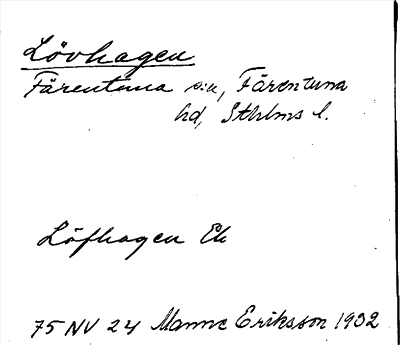 Lövhagen
Färentuna sn, Färentuna
hd, Sthlms l.
Löfhagen Ek
75 NV 24 Manne Eriksson 1932